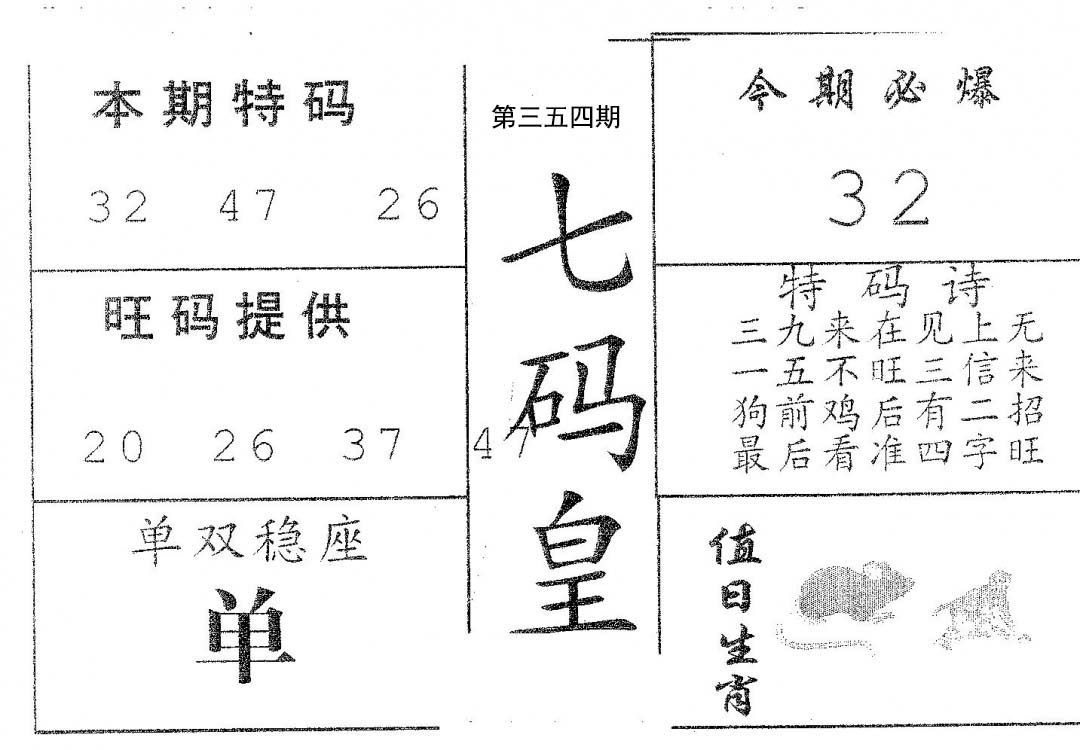 本期特码
32 47 26
旺码提供
20 26 37 47
单双稳座
单
第三五四期
七码皇
今期必爆
32
特码诗
三九来在见上无
一五不旺三信来
狗前鸡后有二招
最后看准四字旺
值日生肖